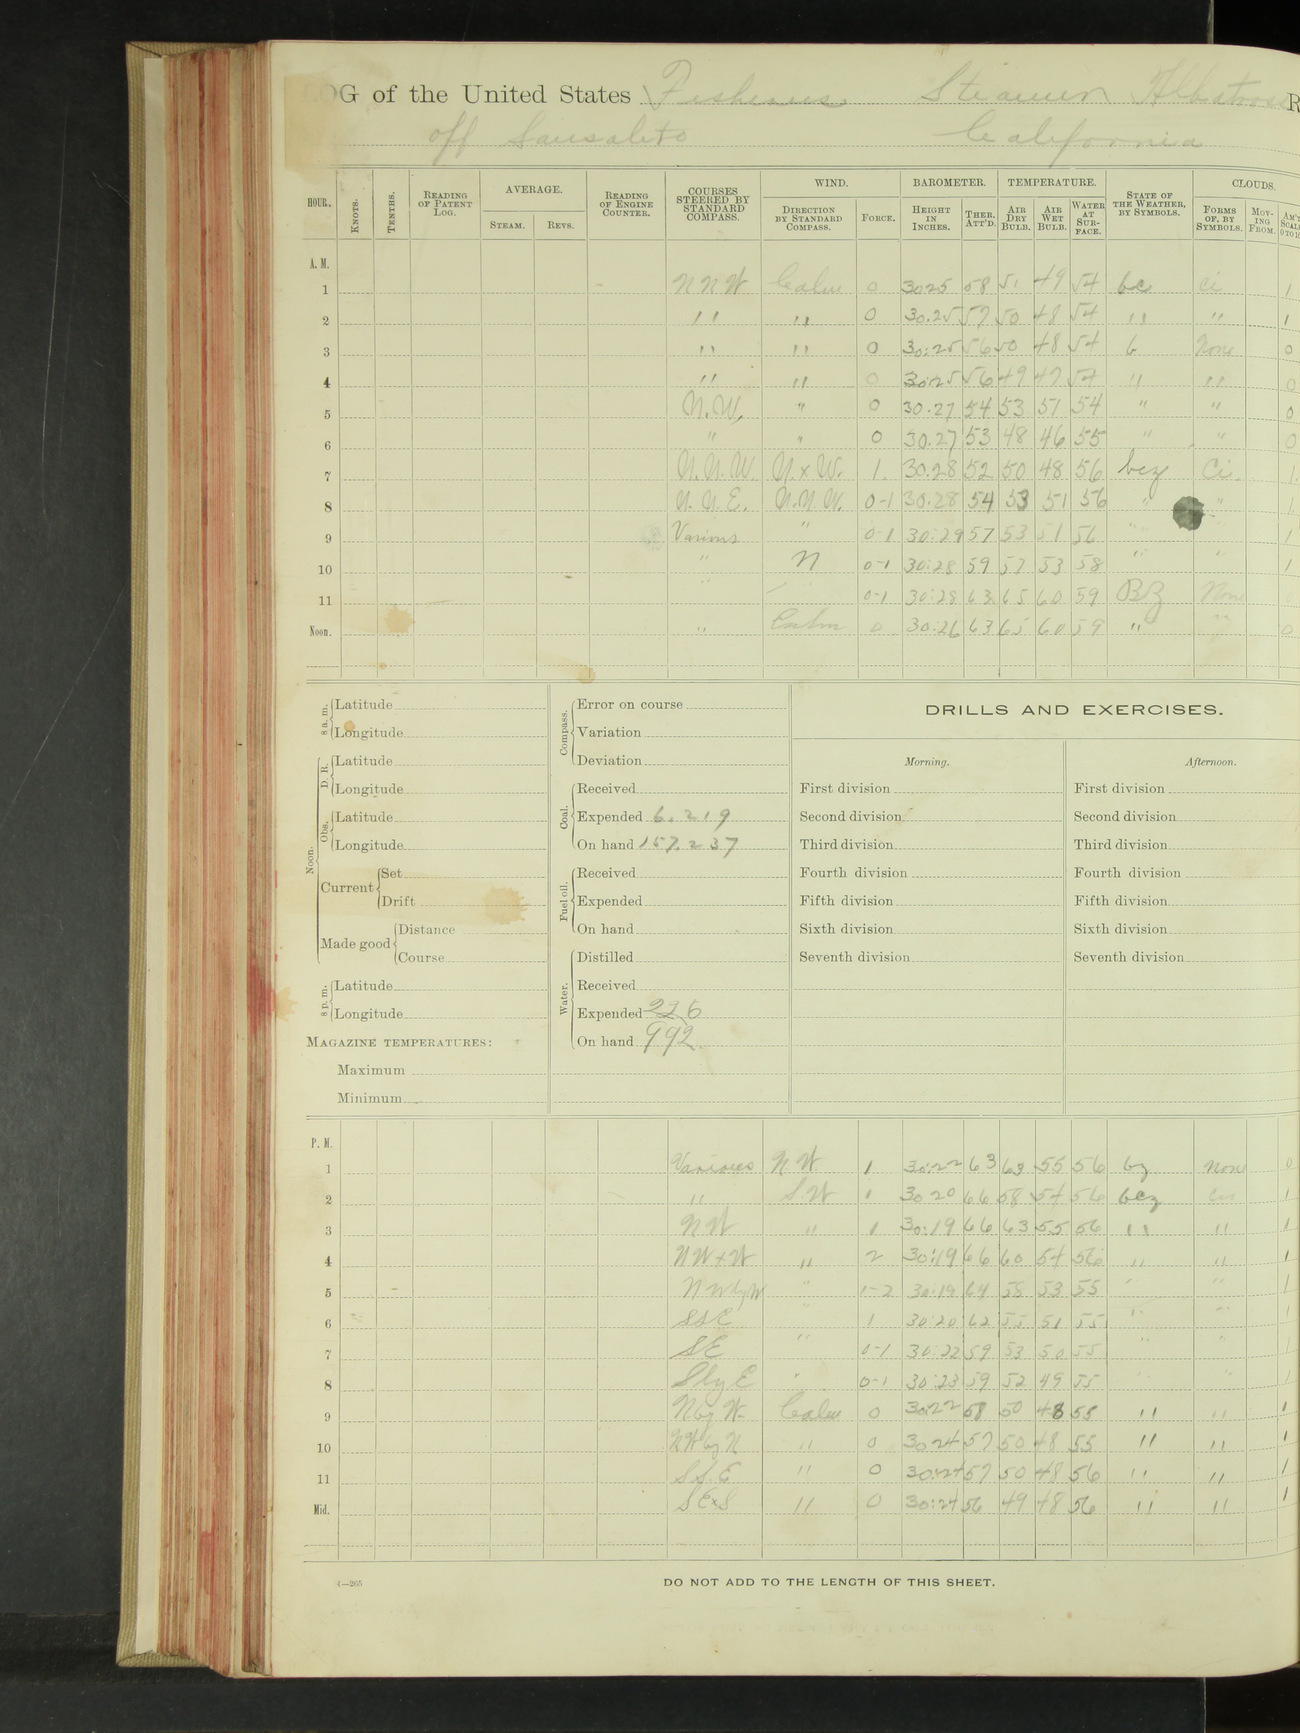 LOG of the United States Fisheries Steamer Albatross R
off Sausalito California
HOUR. KNOTS. TENTHS. READING OF PATENT LOG. AVERAGE. STEAM. REVS. READING OF ENGINE COUNTER. COURSES STEERED BY STANDARD COMPASS. WIND. DIRECTION BY STANDARD COMPASS. FORCE. BAROMETER. HEIGHT IN INCHES. THER. ATT'D. TEMPERATURE. AIR DRY BULB. AIR WET BULB. WATER AT SURFACE. STATE OF THE WEATHER, BY SYMBOLS. CLOUDS. FORMS OF, BY SYMBOLS. MOVING FROM. AM'T SCALE 0 TO 10
A. M.
1 NNW Calm 0 30.25 58 51 49 54 bc Ci 1
2 " " 0 30.25 57 50 48 54 " " 1
3 " " 0 30.25 56 50 48 54 b None 0
4 " " 0 30.25 56 49 47 54 " " 0
5 N.W. " 0 30.27 54 53 51 54 " " 0
6 " " 0 30.27 53 48 46 55 " " 0
7 N.N.W. N.xW. 1. 30.28 52 50 48 56 bcz Ci. 1.
8 N.N.E. N.N.W. 0-1 30.28 54 53 51 56 " " 1
9 Various " 0-1 30.29 57 53 51 56 " " 1
10 " N 0-1 30.28 59 57 53 58 " " 1
11 " 0-1 30.28 63 65 60 59 BZ None 0
Noon. " Calm 0 30.26 63 65 60 59 " " 0
8 a. m. Latitude
Longitude
Noon. D. R. Latitude
Longitude
Obs. Latitude
Longitude
Current Set
Drift
Made good Distance
Course
8 p. m. Latitude
Longitude
MAGAZINE TEMPERATURES:
Maximum
Minimum
Compass. Error on course
Variation
Deviation
Coal. Received
Expended 6.219
On hand 157.237
Fuel oil. Received
Expended
On hand
Water. Distilled
Received
Expended 226
On hand 992
DRILLS AND EXERCISES.
Morning.
First division
Second division
Third division
Fourth division
Fifth division
Sixth division
Seventh division
Afternoon.
First division
Second division
Third division
Fourth division
Fifth division
Sixth division
Seventh division
P. M.
1 Various N.W 1 30.22 63 63 55 56 bz None 0
2 " S.W 1 30 20 66 58 54 56 bcz 1
3 NW " 1 30.19 66 63 55 56 " " 1
4 NWxW " 2 30.19 66 60 54 56 " " 1
5 NWbyW " 1-2 30.19 64 58 53 55 " " 1
6 SSE " 1 30.20 62 55 51 55 " " 1
7 SE " 0-1 30.22 59 53 50 55 " " 1
8 SbyE " 0-1 30.23 59 52 49 55 1
9 Nby W. Calm 0 30.22 58 50 48 55 " " 1
10 NWby N " 0 30 24 57 50 48 55 " " 1
11 S.S.E " 0 30.24 57 50 48 56 " " 1
Mid. SExS " 0 30.24 56 49 48 56 " " 1
DO NOT ADD TO THE LENGTH OF THIS SHEET.